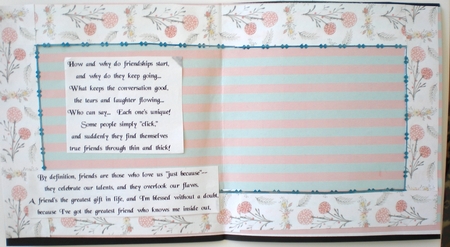 How and why do friendships start,
and why do they keep going...
What keeps the conversation good,
the tears and laughter flowing...
Who can say... Each one's unique!
Some people simply "click,"
and suddenly they find themselves
true friends through thin and thick!
By definition, friends are those who love us "just because"—
they celebrate our talents, and they overlook our flaws.
A friend's the greatest gift in life, and I'm blessed without a doubt,
because I've got the greatest friend who knows me inside out.